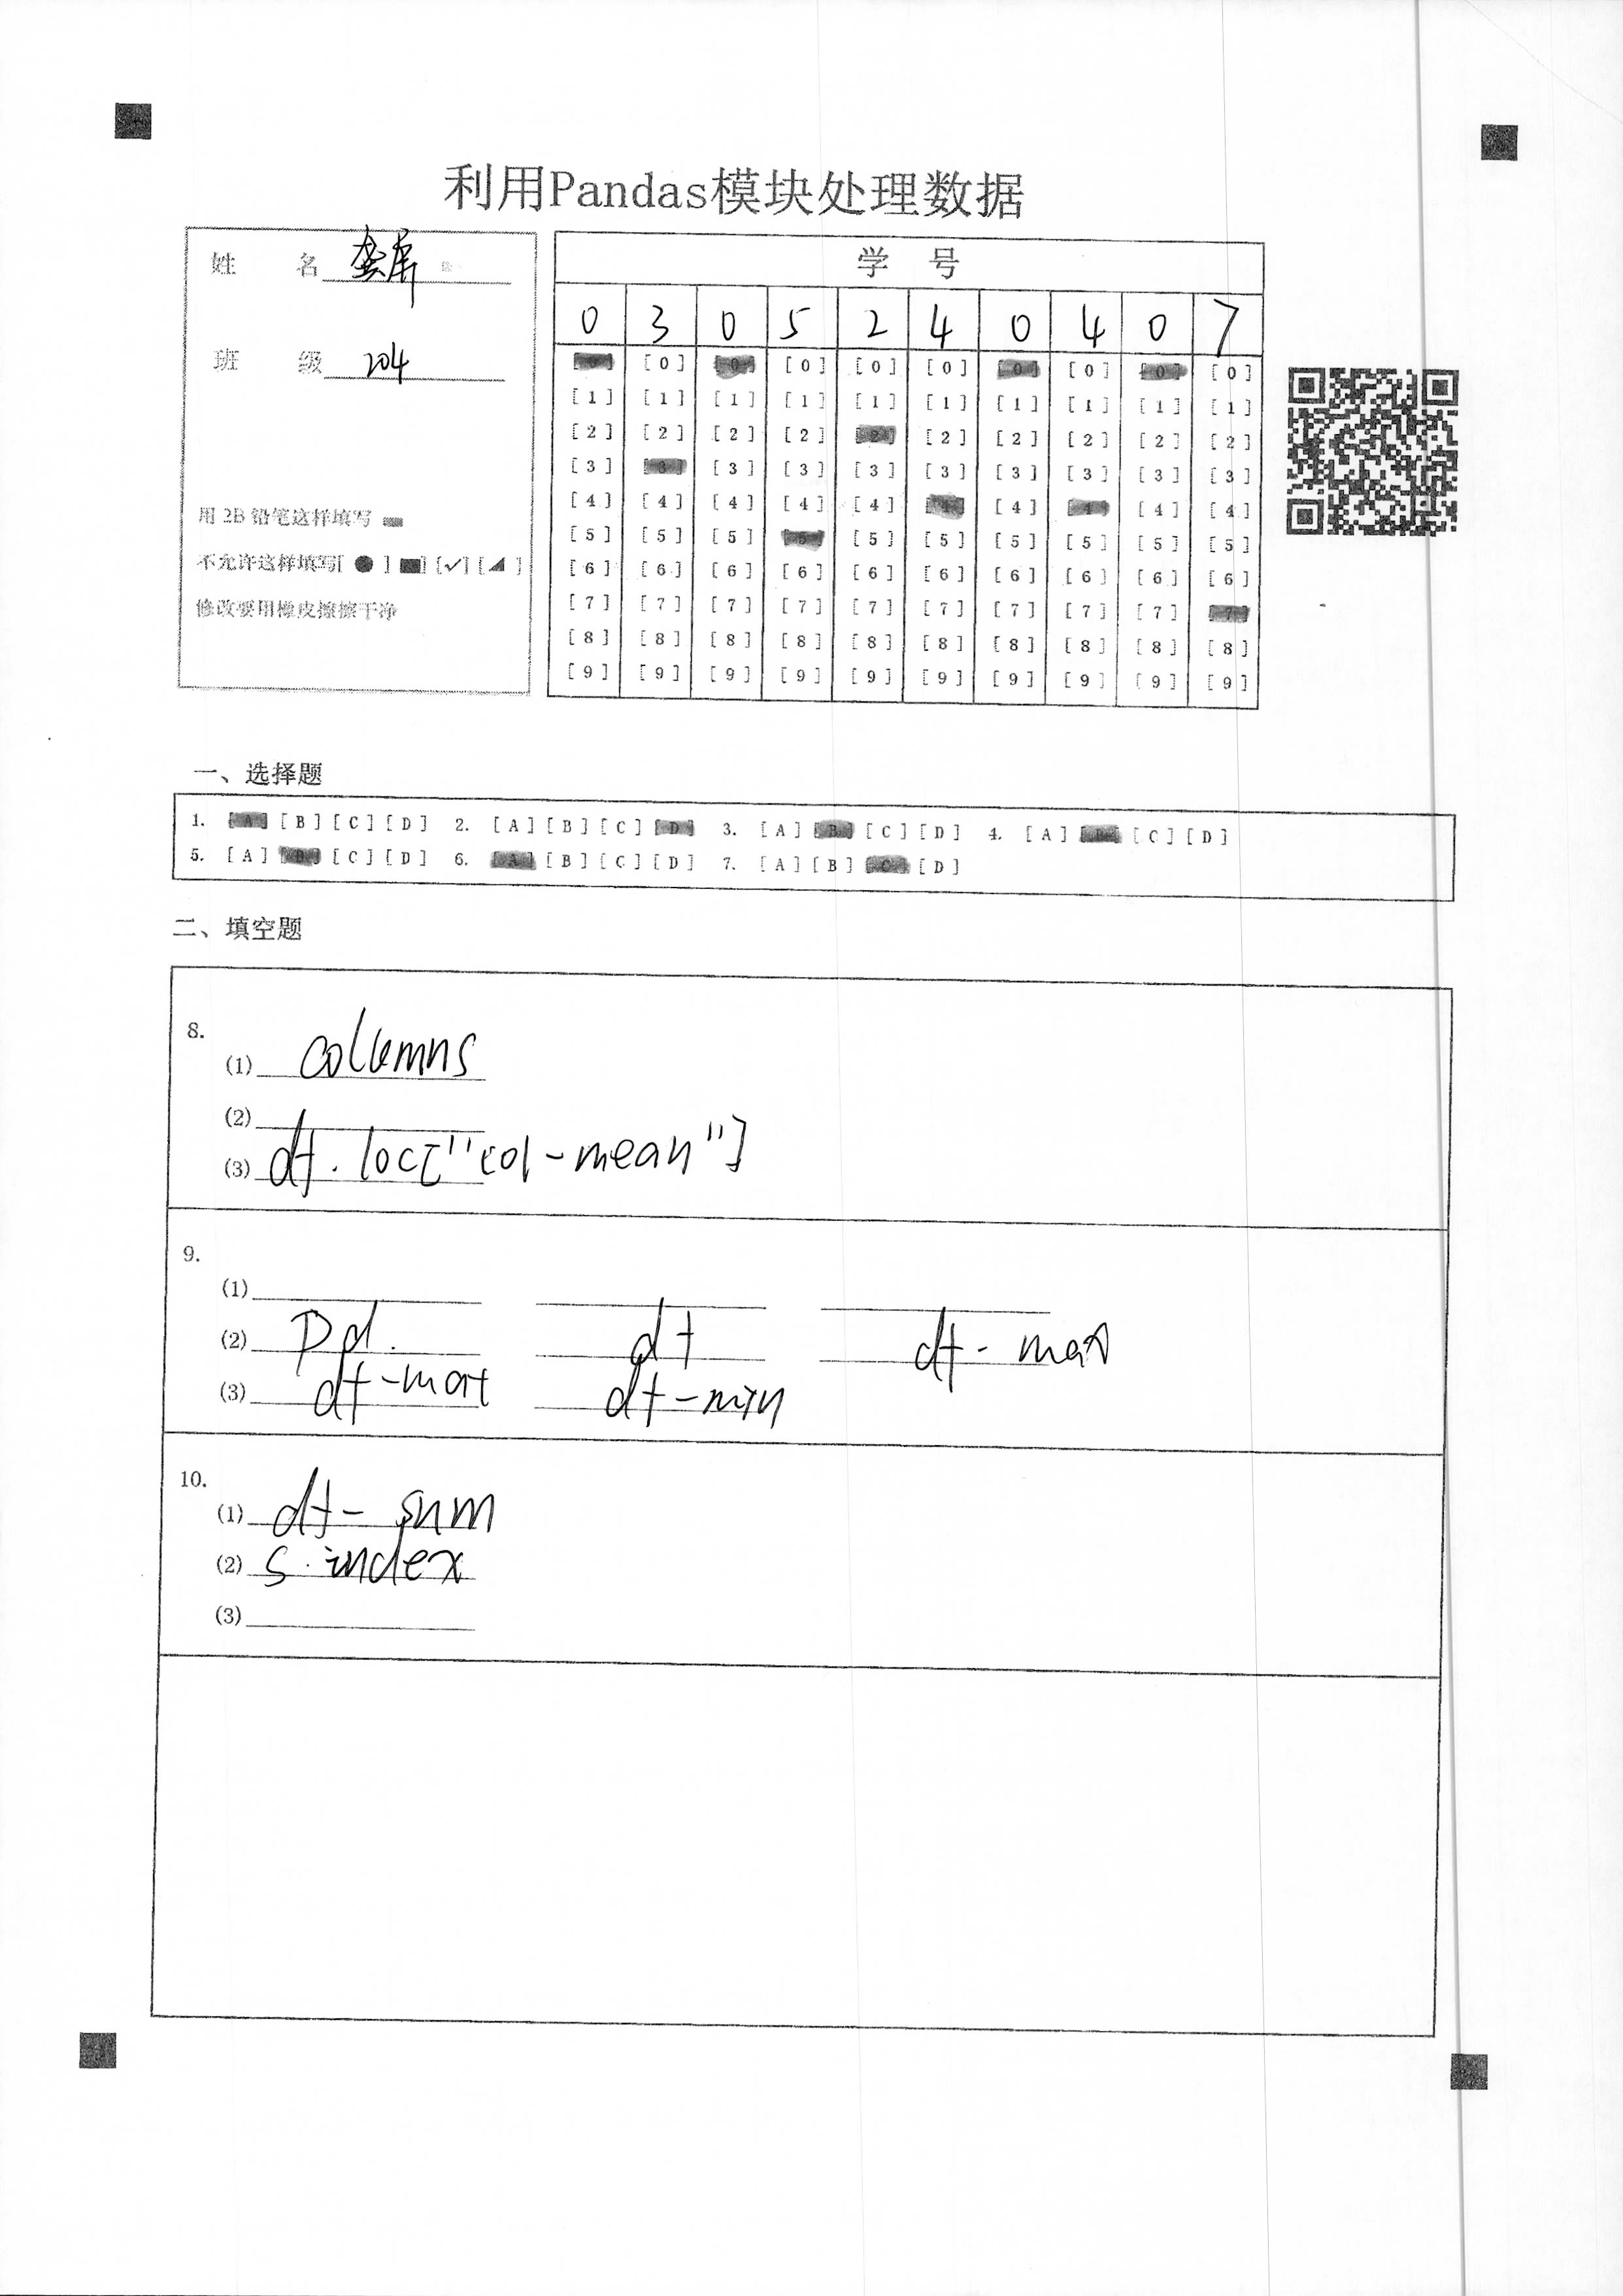 利用Pandas模块处理数据
姓 名 龚犀
班 级 204
用 2B 铅笔这样填写
不允许这样填写[ ● ] ■] [✓] [◢ ]
修改要用橡皮擦擦干净
学 号
0 3 0 5 2 4 0 4 0 7
[0] [0] [0] [0] [0] [0] [0] [0] [0] [0]
[1] [1] [1] [1] [1] [1] [1] [1] [1] [1]
[2] [2] [2] [2] [2] [2] [2] [2] [2] [2]
[3] [3] [3] [3] [3] [3] [3] [3] [3] [3]
[4] [4] [4] [4] [4] [4] [4] [4] [4] [4]
[5] [5] [5] [5] [5] [5] [5] [5] [5] [5]
[6] [6] [6] [6] [6] [6] [6] [6] [6] [6]
[7] [7] [7] [7] [7] [7] [7] [7] [7] [7]
[8] [8] [8] [8] [8] [8] [8] [8] [8] [8]
[9] [9] [9] [9] [9] [9] [9] [9] [9] [9]
一、选择题
1. [A] [B] [C] [D] 2. [A] [B] [C] [D] 3. [A] [B] [C] [D] 4. [A] [B] [C] [D]
5. [A] [B] [C] [D] 6. [A] [B] [C] [D] 7. [A] [B] [C] [D]
二、填空题
8.
(1) columns
(2)
(3) df. loc["col-mean"]
9.
(1)
(2) Pd. df df- max
(3) df-max df-min
10.
(1) df- sum
(2) s.index
(3)